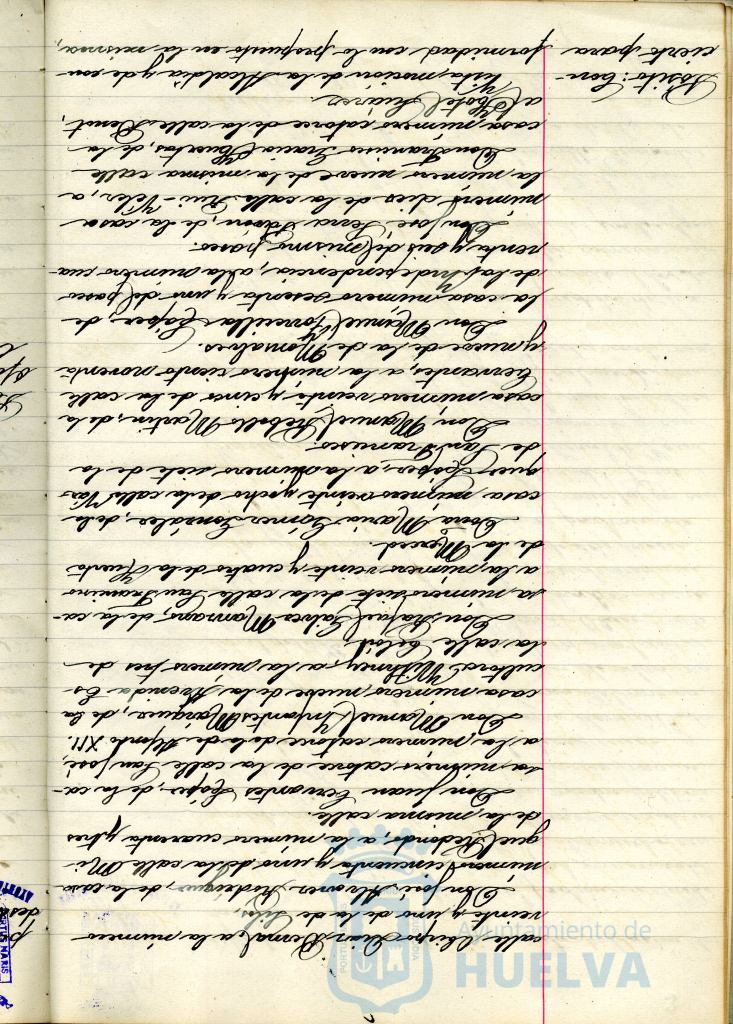 calle Obispo Díaz Bernal, a la número
veinte y uno de la de
Don José Alvarez Rodríguez, de la casa
número cincuenta y uno de la calle Mi-
guel Redondo, a la número cuarenta y tres
de la misma calle.
Don Juan Cervantes López, de la ca-
sa número catorce de la calle San José,
a la número catorce de la de Alfonso XII.
Don Manuel Infantes Márquez, de la
casa número nueve de la Avenida Es-
cultora Withney, a la número tres de
la calle
Don Rafael Galvez Manzano, de la ca-
sa número siete de la calle San Francisco
a la número veinte y cuatro de la Huerta
de la Merced.
Doña María Gómez González, de la
casa número veinte y ocho de la calle Váz-
quez López, a la número siete de la
de San Francisco.
Don Manuel Rebollo Martin, de la
casa número veinte y cinco de la calle
Cervantes, a la número ciento noventa
y nueve de la de
Don Manuel Torrecilla López, de
la casa número sesenta y uno del paseo
de la Independencia, a la número cua-
renta y seis del mismo paseo.
Don José Serra de la casa
número dies de la calle Rui-Vélez, a
la número nueve de la misma calle
Don Francisco García Huertas, de la
casa número catorce de la calle
al Hotel Suárez.
Pósito: Con-
cierto para
Vista, moción de la Alcaldía y de con-
formidad con lo propuesto en la misma,
Ayuntamiento de
HUELVA
PORTUS MARIS